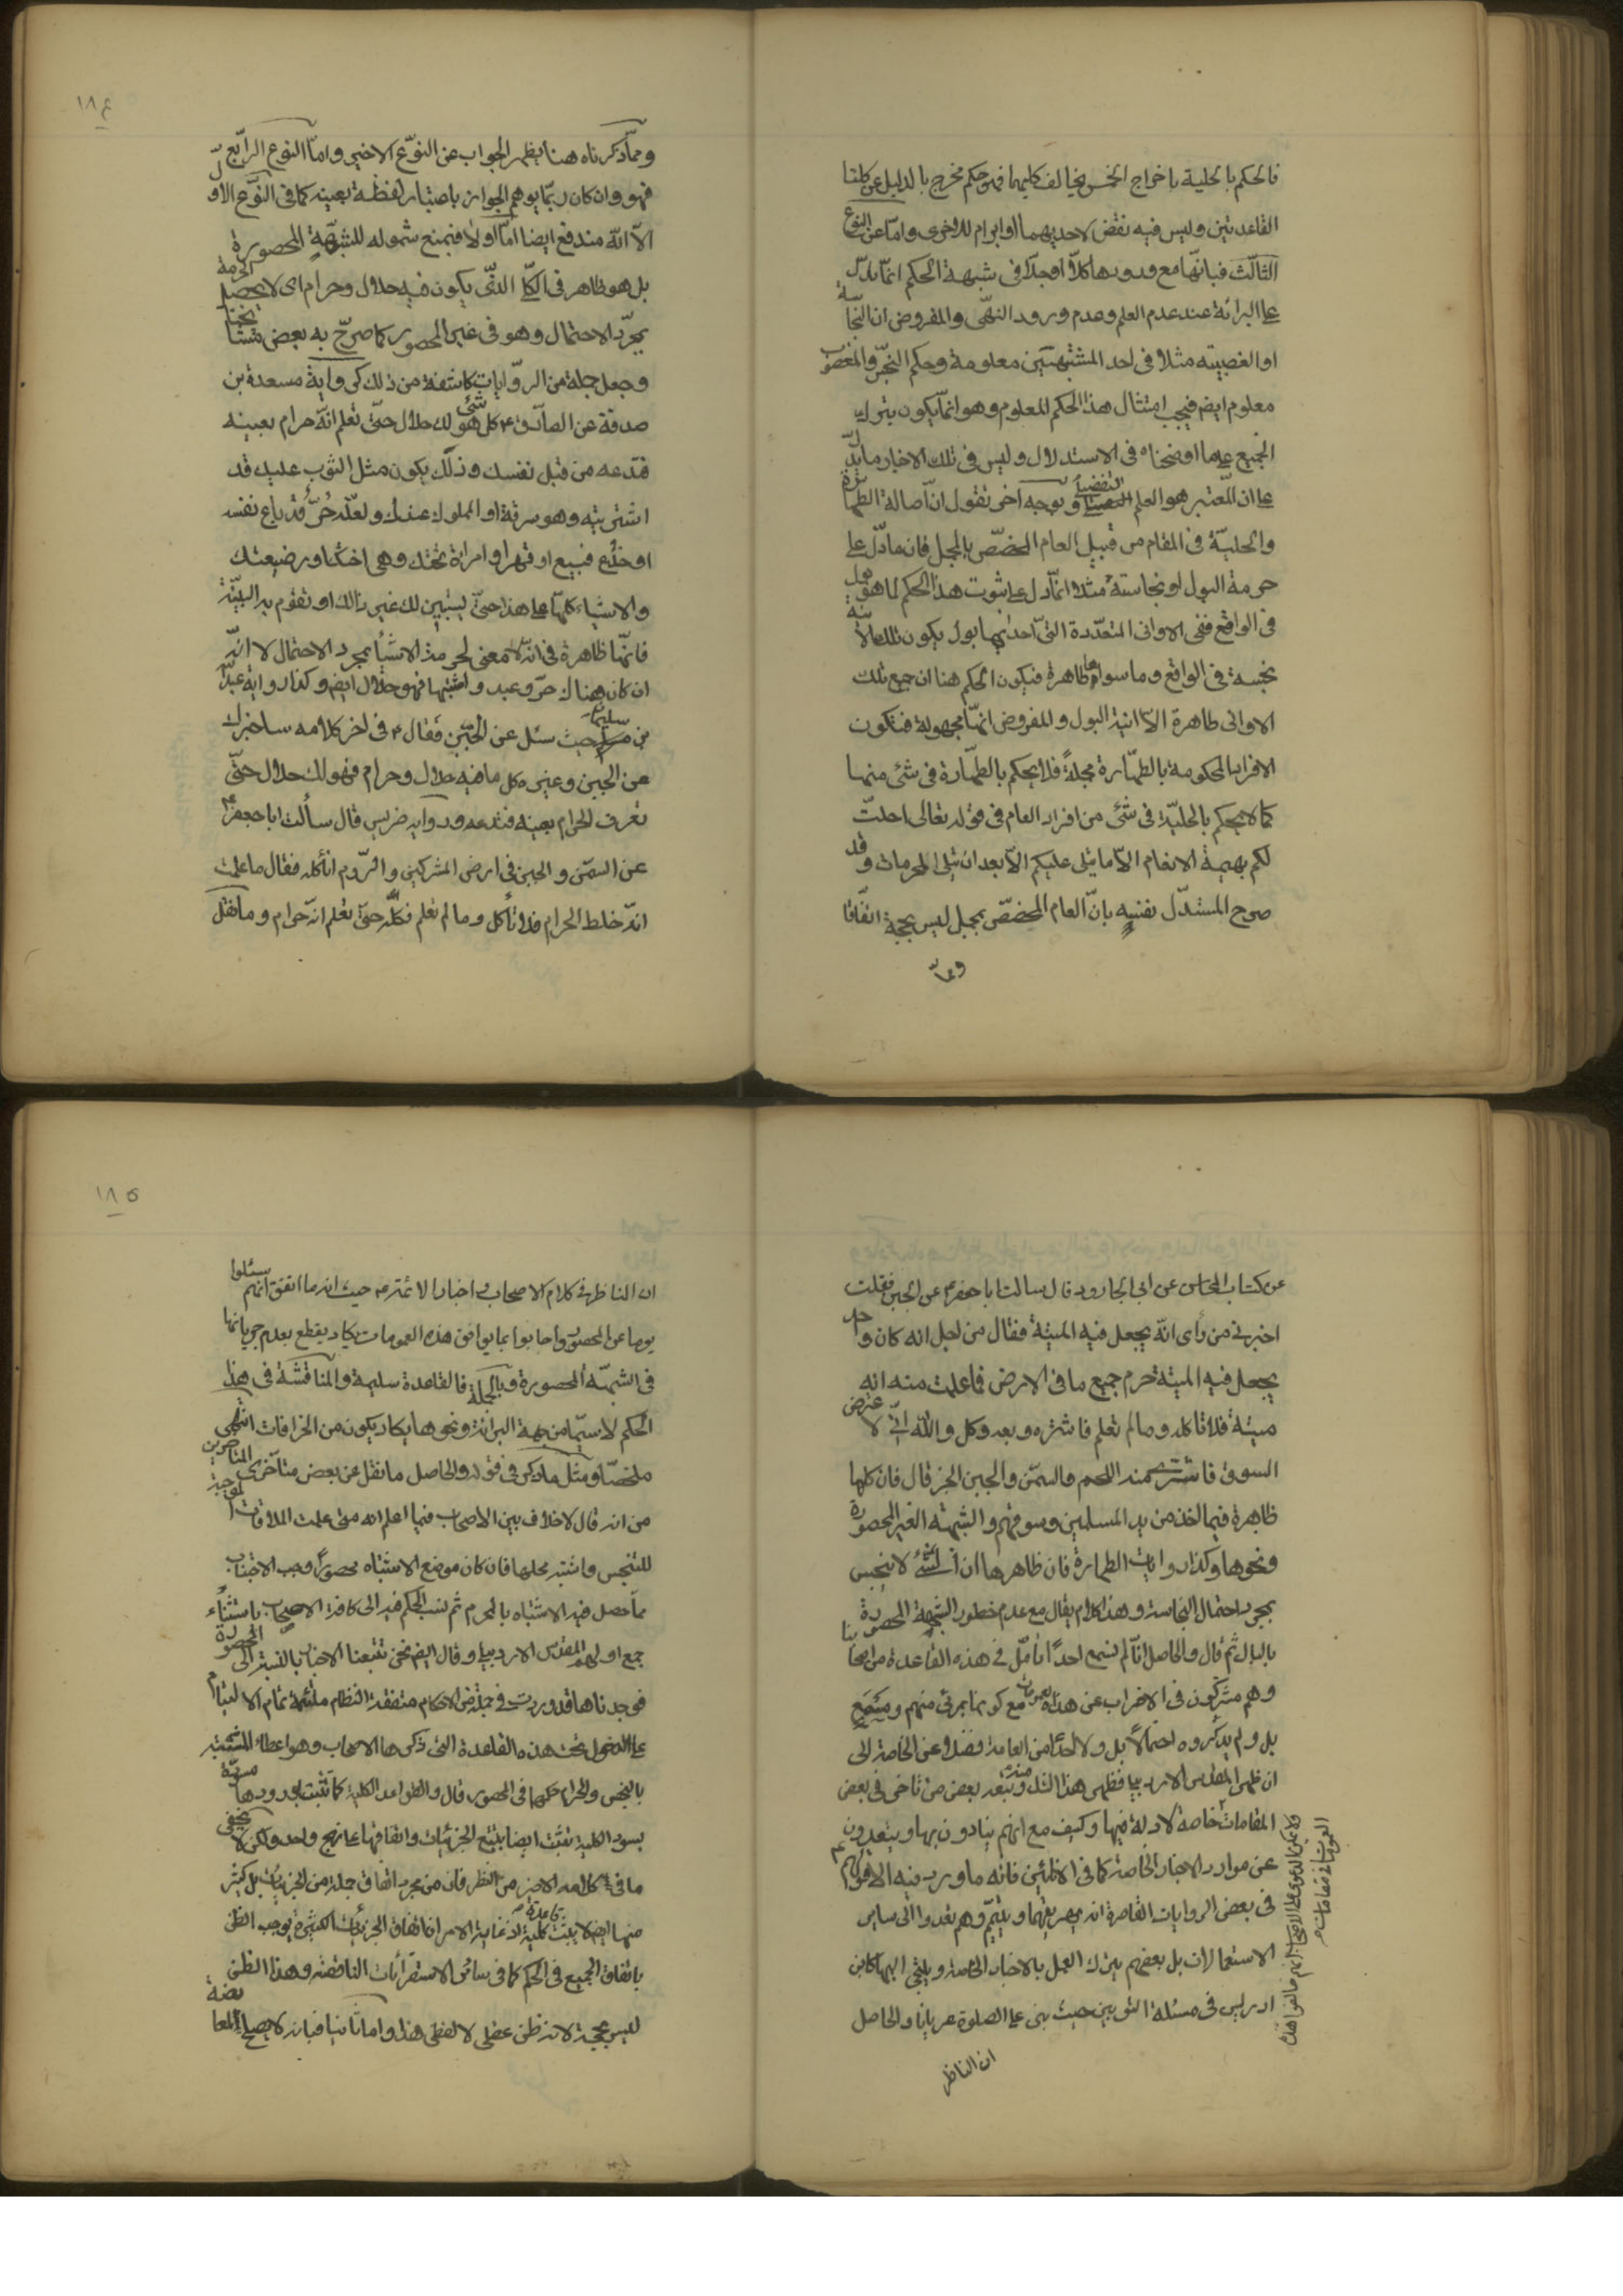 فالحكم بالحلية باخراج الخمس يخالف كليهما فهو حكم مخرج بالدليل عن كلتا
القاعدتين وليس فيه نقض لاحديهما او ابرام للاخرى واما عن النوع
الثالث فبانها مع ورودها كلا او جلا في شبهة الحكم انما يدل
على البرائة عند عدم العلم وعدم ورود النهى والمفروض ان النجاسة
او الغصبيته مثلا في احد المشتبهتين معلومة وحكم النجس والمغصوب
معلوم ايضا فيجب امتثال هذا الحكم المعلوم وهو انما يكون بترك
الجميع على ما اوضحناه في الاستدلال وليس في تلك الاخبار ما يدل
على ان المعتبر هو العلم التفصيلى وبوجه اخر نقول ان اصالة الطهارة
والحلية في المقام من قبيل العام المخصص بالمجمل فان ما دل على
حرمة البول او نجاسته مثلا انما دل على ثبوت هذا الحكم لما هو بول
في الواقع ففى الاوانى المتعددة التى احدايها بول يكون تلك الانية
نجسة في الواقع وما سواها طاهرة فيكون الحكم هنا ان جميع تلك
الاوانى طاهرة الا انية البول والمفروض انها مجهولة فتكون
الافراد المحكومة بالطهارة مجملة فلا يحكم بالطهارة في شئ منها
كما لا يحكم بالحلية في شئ من افراد العام في قوله تعالى احلت
لكم بهيمة الانعام الا ما يتلى عليكم الا بعد ان تتلى المحرمات وقد
صرح المستدل نفسه بان العام المخصص بمجمل ليس بحجة اتفاقا
ومما
١٨٤
ومما ذكرناه هنا يظهر الجواب عن النوع الاخير واما النوع الرابع
فهو وان كان ربما يوهم الجواز باعتبار لفظة بعينه كما في النوع الاول
الا انه مندفع ايضا اما اولا فبمنع شموله للشبهة المحصورة
بل هو ظاهر في الكلى الذى يكون فيه حلال وحرام اى لا يحصل الحرمة
بمجرد الاحتمال وهو في غير المحصور كما صرح به بعض مشايخنا
وجعل جملة من الروايات كاشفة من ذلك كرواية مسعدة بن
صدقة عن الصادق ع كل شئ هو لك حلال حتى تعلم انه حرام بعينه
فتدعه من قبل نفسك وذلك يكون مثل الثوب عليك قد
اشتريته وهو سرقة او المملوك عندك ولعله حر قد باع نفسه
او خدع فبيع او قهر او امراة تحتك وهى اختك او رضيعتك
والاشياء كلها على هذا حتى يستبين لك غير ذالك او تقوم به البينة
فانها ظاهرة في انه لا معنى لحرمة الاشياء بمجرد الاحتمال لا انه
ان كان هناك حر وعبد واشتبها فهو حلال ايضا وكذا رواية عبد الله
بن سليمان حيث سئل عن الجبن فقال ع في اخر كلامه ساخبرك
عن الجبن وغيره كل ما فيه حلال وحرام فهو لك حلال حتى
تعرف الحرام بعينه فتدعه ورواية ضريس قال سألت ابا جعفر ع
عن السمن والجبن في ارض المشركين والروم اناكله فقال ما علمت
انه خلط الحرام فلا تأكل وما لم تعلم فكله حتى تعلم انه حرام وما نقل
عن كتاب المحاسن عن ابى الجارود قال سالت ابا جعفر ع عن الجبن فقلت
اخبرنى من رأى انه يجعل فيه الميتة فقال من اجل انه كان واحد
يجعل فيه الميتة حرم جميع ما في الارض فما علمت منه انه
ميتة فلا تاكله وما لم تعلم فاشتره وبعه وكل والله انى لا عترض
السوق فاشترى منه اللحم والسمن والجبن الخبر قال فان كلها
ظاهرة فيما اخذ من يد المسلمين وسوقهم والشبهة الغير المحصورة
ونحوها وكذا روايات الطهارة فان ظاهرها ان الشئ لا ينجس
بمجرد احتمال النجاسة وهذا كلام يقال مع عدم خطور الشبهة المحصورة
بالبال ثم قال والحاصل انا لم نسمع احدا تامل في هذه القاعدة من اصحابنا
وهم مشتركون في الاضراب عن هذه العمومات مع كونها بمرئ منهم ومسمع
بل ولم يذكروه احتمالا بل ولا احدا من العامة فضلا عن الخاصة الى
ان ظهر المقدس الاردبيلى فظهر هذا الشك منه وتبعه بعض من تاخر في بعض
المقامات خاصة لادلة فيها وكيف مع انهم ينادون بها ويتعدون
عن موارد الاخبار الخاصة كما في الانائين فانه ما ورد فيه الا قولهم ع
في بعض الروايات القاصرة انه يهريقهما ويتيمم وهم تعدوا الى ساير
الاستعمالات بل بعضهم يترك العمل بالاخبار الخاصة ويلتجى اليها كابن
ادريس في مسئلة الثوبين حيث بنى على الصلوة عريانا والحاصل
ان الناظر
العمومات في مقامات م
١٨٥
ان الناظر في كلام الاصحاب في اخبار الائمة ع حيث انه ما اتفق انهم سئلوا
يوما عن المحصور واجابوا بما يوافق هذه العمومات يكاد يقطع بعدم جريانها
في الشبهة المحصورة وبالجملة فالقاعدة سليمة والمناقشة في هذا
الحكم لا سيما من جهة البرائة ونحوها يكاد يكون من الخرافات انتهى
ملخصا ومثل ما ذكره في قوله والحاصل ما نقل عن بعض متأخرى المتاخرين
من انه قال لا خلاف بين الاصحاب فيما اعلم انه متى علمت الملاقات الموجبة
للتنجس واشتبه محلها فان كان موضع الاشتباه محصورا وجب الاجتناب
مما حصل فيه الاشتباه بالمحرم ثم نسب الحكم فيه الى كافة الاصحاب باستثناء
جمع اولهم المقدس الاردبيلى وقال ايضا نحن تتبعنا الاخبار بالنسبة الى المحصورة
فوجدناها قد وردت في جملة من الاحكام متفقة النظام ملتئمة تمام الالتيام
على الدخول تحت هذه القاعدة التى ذكرها الاصحاب وهو اعطاء المشتبه
بالنجس والحرام حكمها في المحصور قال والقواعد الكلية كما تثبت بورودها مسورة
بسور الكلية تثبت ايضا بتتبع الجزئيات واتفاقها على نهج واحد ولكن لا يخفى
ما في كلامه الاخير من النظر فان من مجرد اتفاق جملة من الجزئيات بل كثير
منها ايضا لا يثبت قاعدة كلية اذ غاية الامر ان اتفاق الجزئيات الكثيرة يوجب الظن
باتفاق الجميع في الحكم كما في سائر الاستقرائات الناقصة وهذا الظن
ليس بحجة لانه ظن عقلى لا لفظى هذا واما ثانيا فبانه لا يصلح للمعارضة